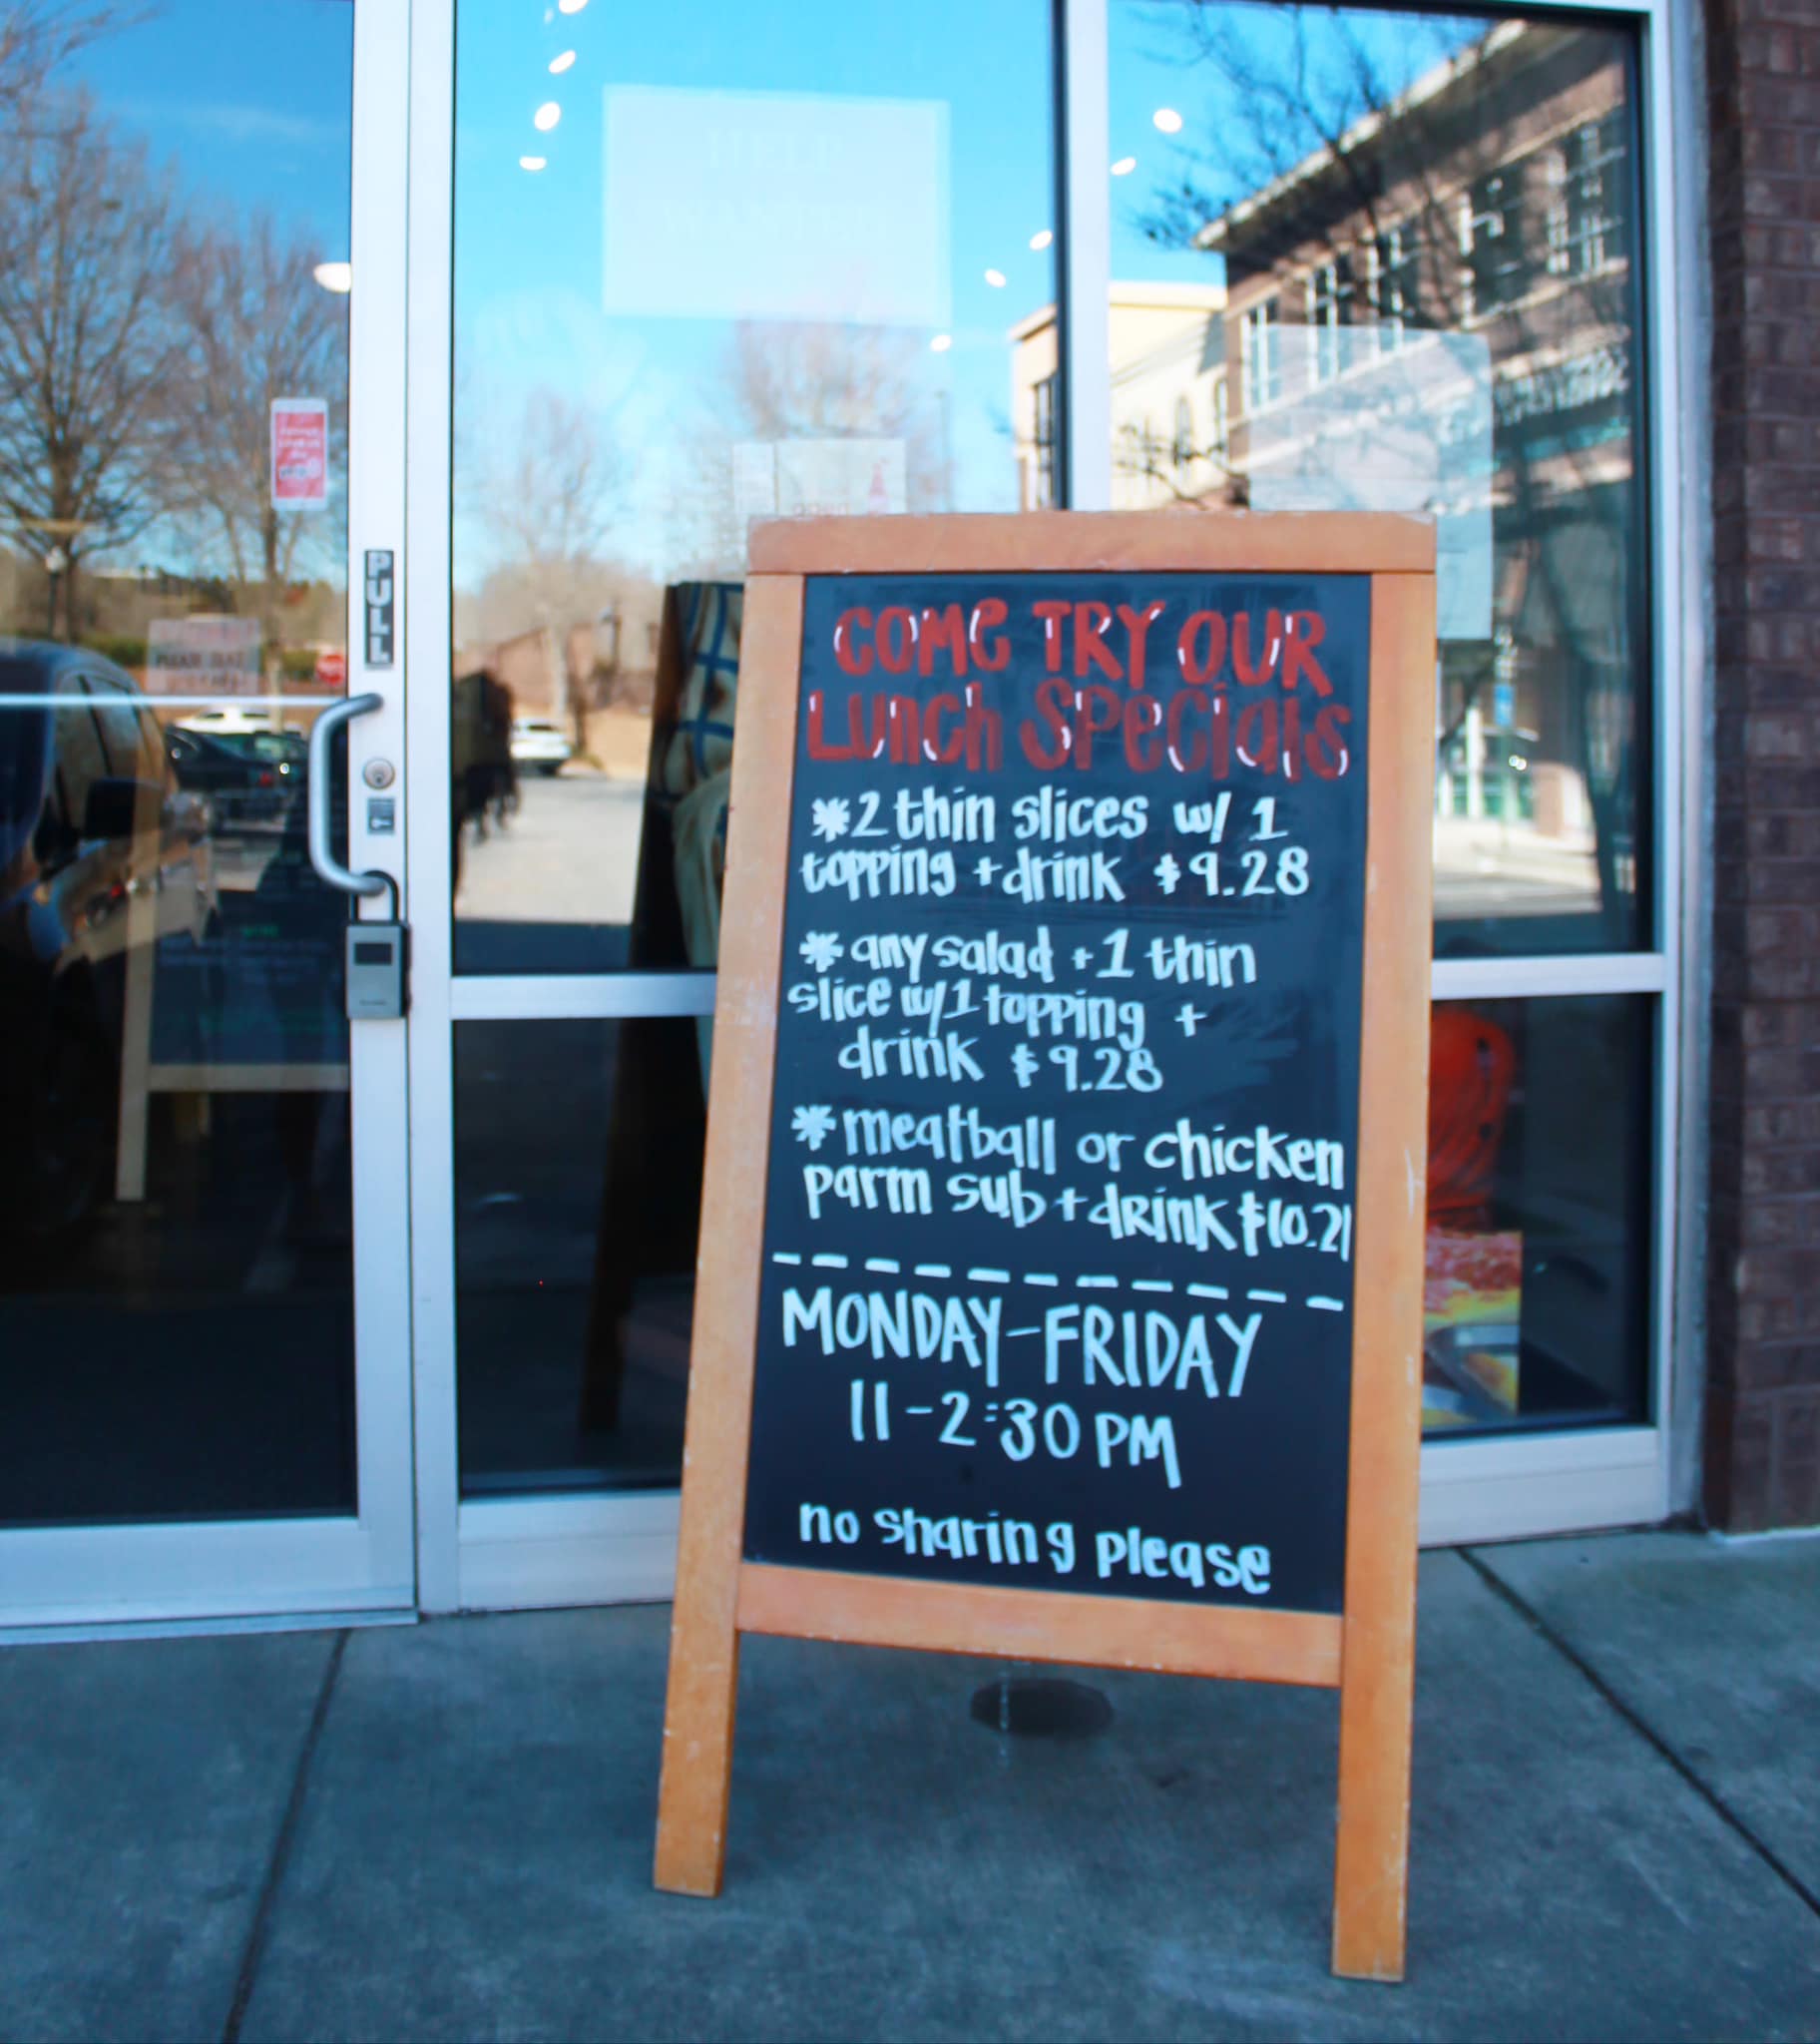 HELP
WANTED
PULL
COME TRY OUR
Lunch Specials
*2 thin slices w/ 1
topping + drink $9.28
* any salad + 1 thin
slice w/1 topping +
drink $9.28
* meatball or chicken
parm sub + drink $10.21
MONDAY-FRIDAY
11-2:30 PM
no sharing please